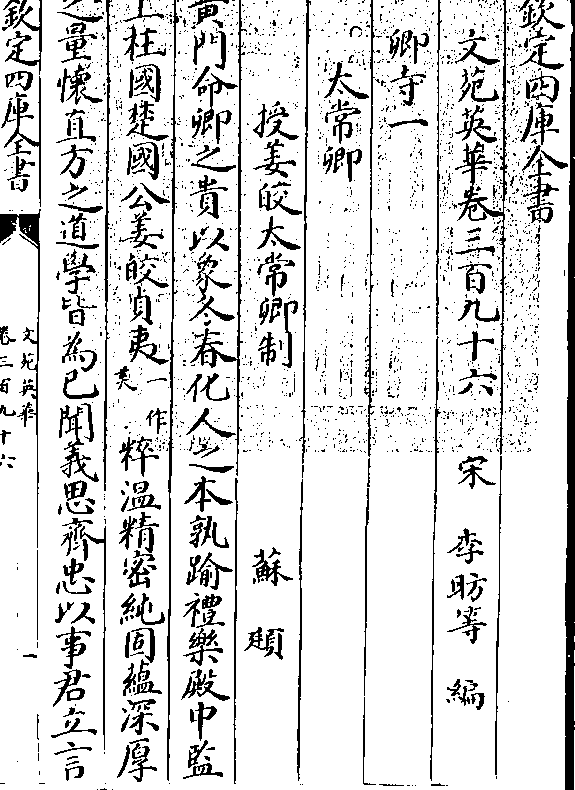 欽定四庫全書
文苑英華卷三百九十六 宋 李昉等 編
卿寺一
太常卿
授姜皎太常卿制 蘇頲
黃門命卿之貴以象冬春化人之本孰踰禮樂殿中監
上柱國楚國公姜皎貞夷一作英粹温精密純固藴深厚
之量懷直方之道學皆為已聞義思齊忠以事君立言
欽定四庫全書
文苑英華
卷三百九十六
一